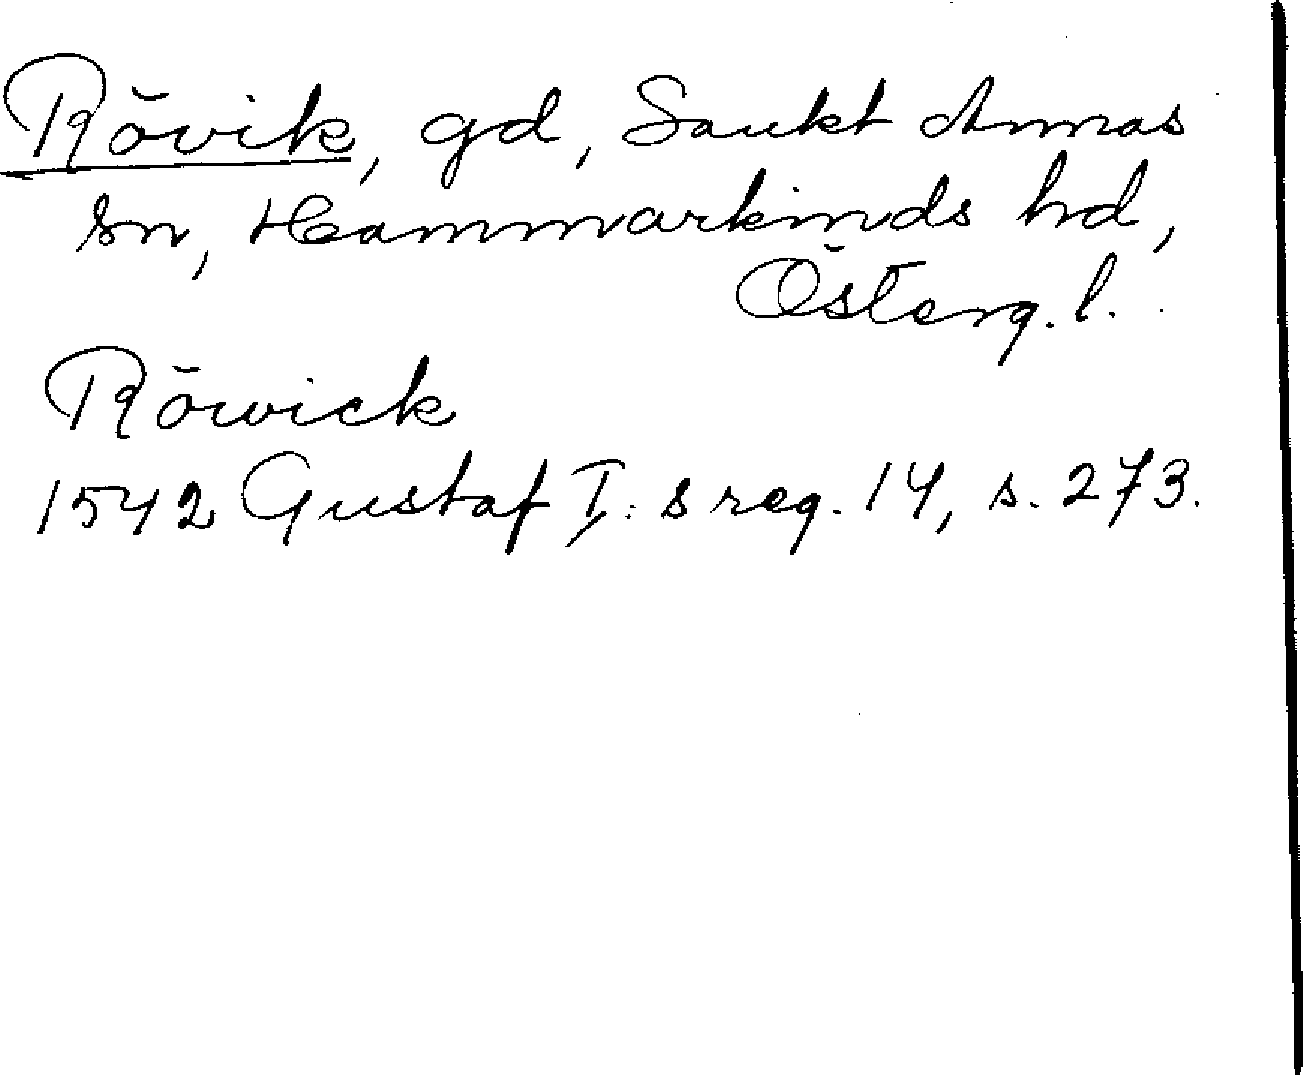 Rövik, gd, Sankt Annas
sn, Hammarkinds hd,
Österg. l.
Röwick
1542 Gustaf I:s reg. 14, s. 273.